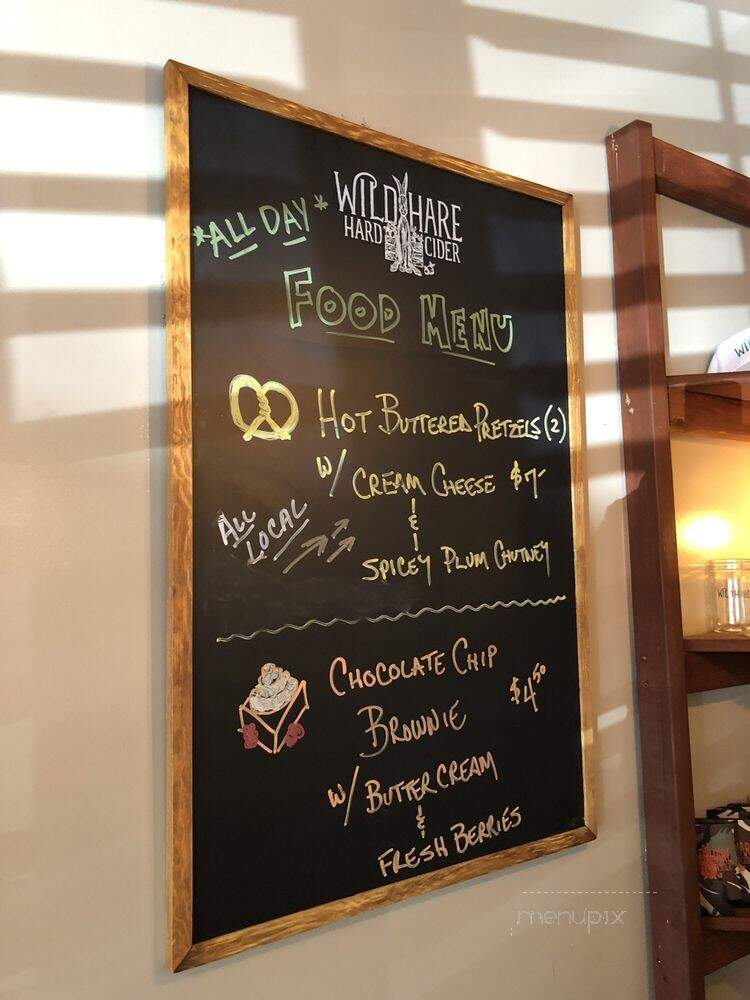 *ALL DAY*
WILD HARE
HARD CIDER
FOOD MENU
HOT BUTTERED PRETZELS (2)
W/ CREAM CHEESE $7-
&
SPICEY PLUM CHUTNEY
ALL
LOCAL
CHOCOLATE CHIP
BROWNIE $4.50
W/ BUTTER CREAM
&
FRESH BERRIES
menupix